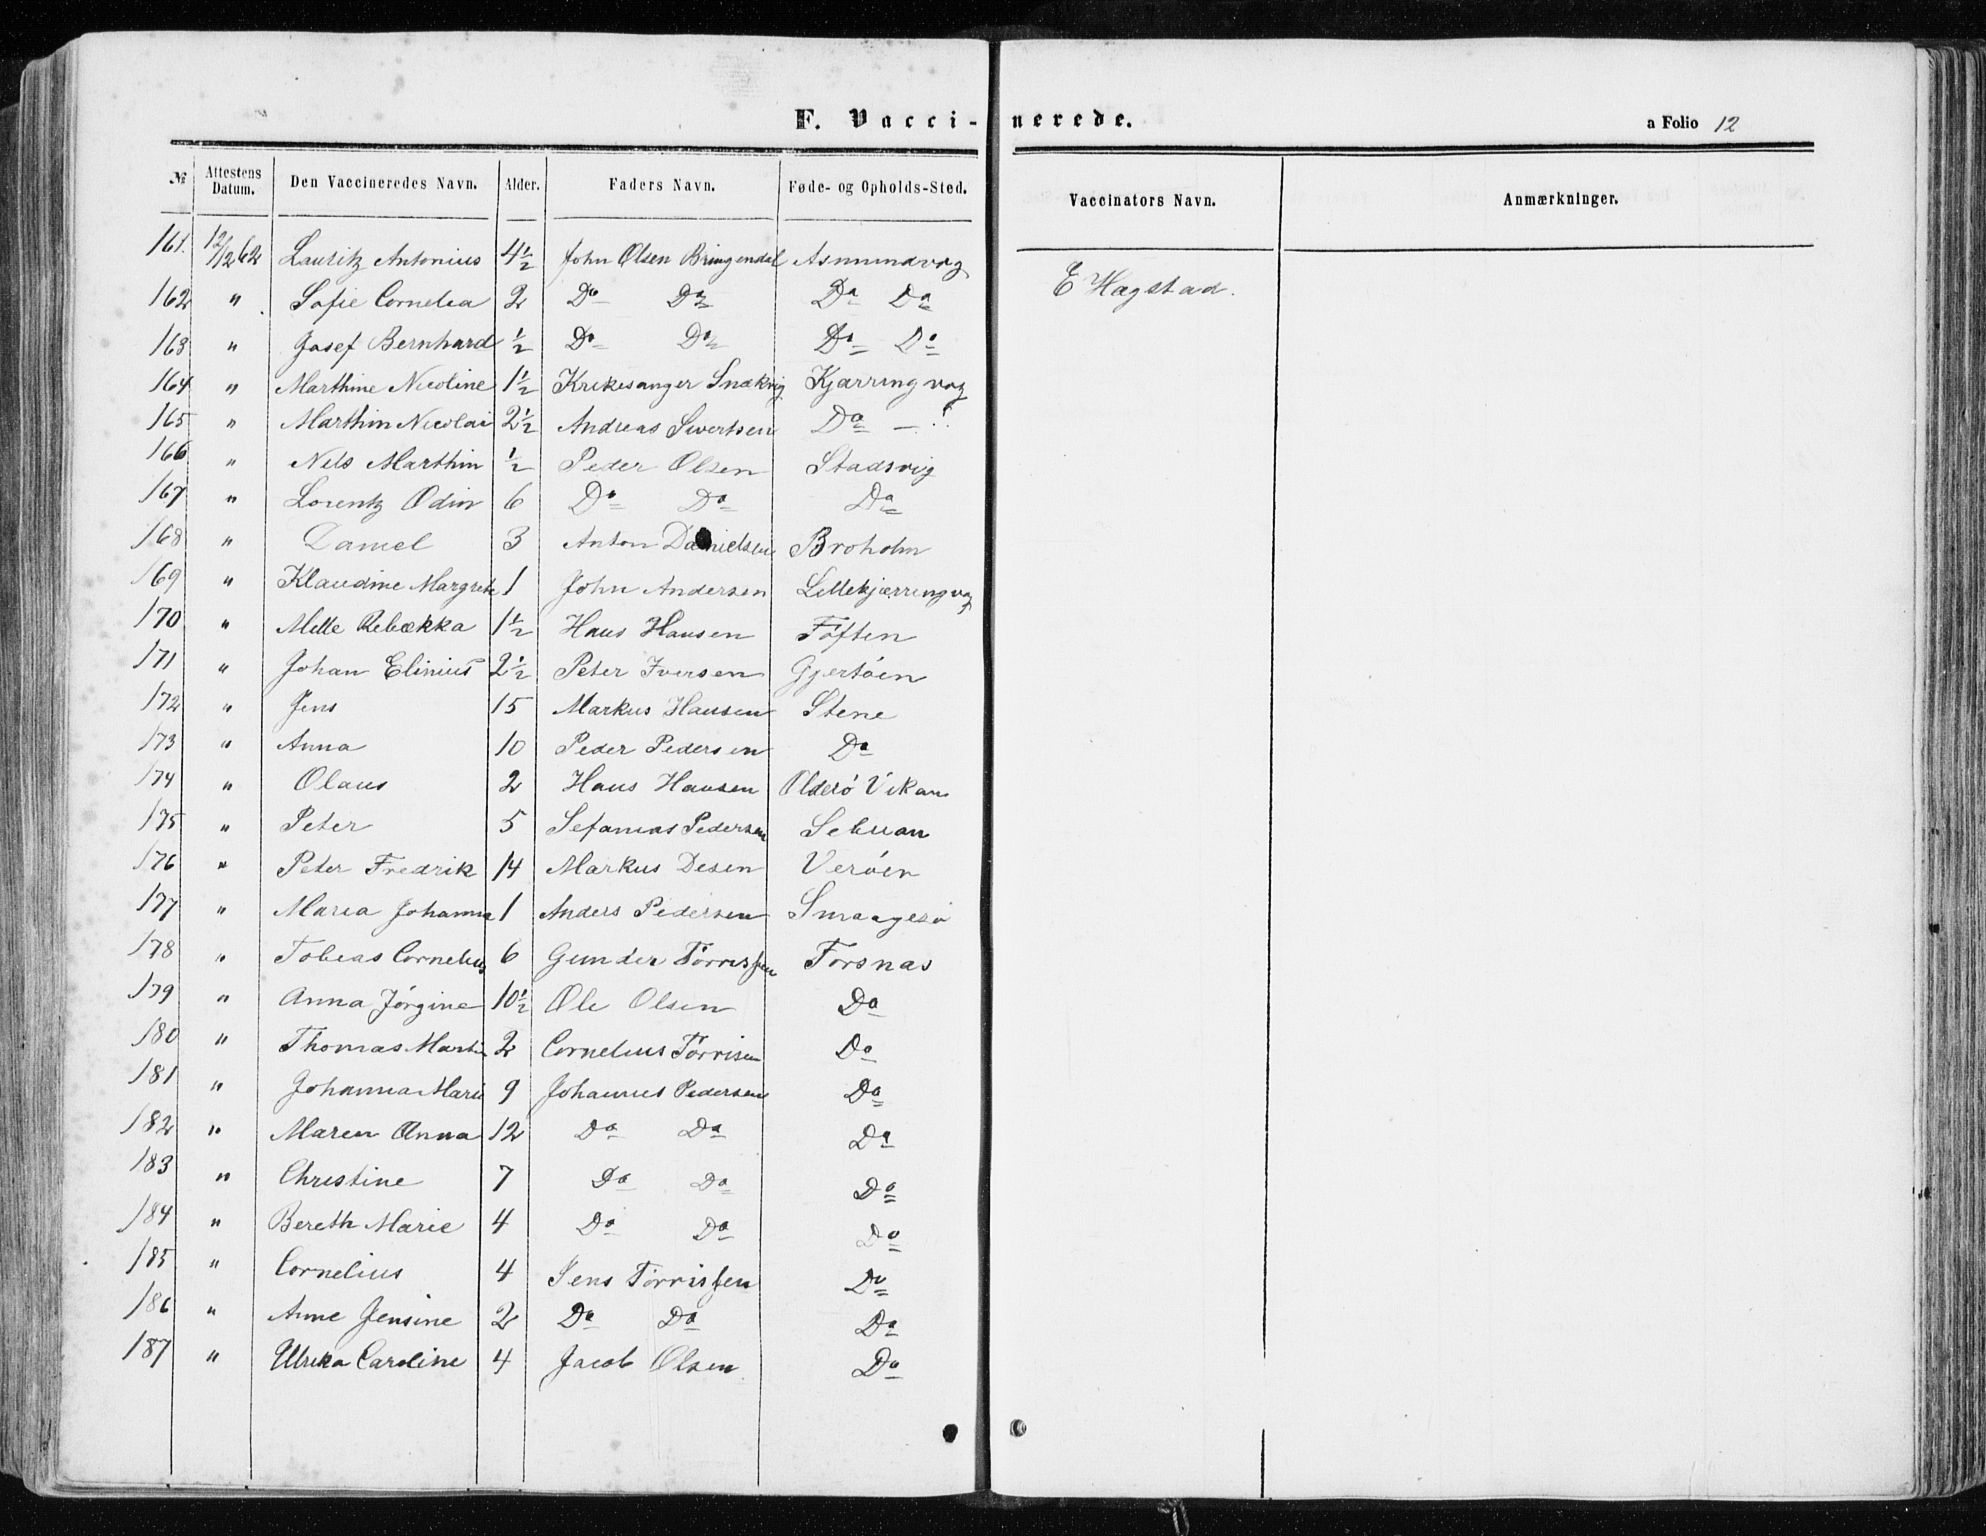 F. Vacci-nerede.
a Folio 12
№ Attestens Datum. Den Vaccineredes Navn. Alder. Faders Navn. Føde- og Opholds-Sted. Vaccinators Navn. Anmærkninger.
161. 12/12 62 Lauritz Antonius 4½ John Olsen Bringendal Asmundvag
162 " Sofie Cornelia 2 Do Do Do Do E Hagstad.
163 " Josef Bernhard ½ Do Do Do Do
164 " Marthine Nicoline 1½ Krikesanger Snækvig Kjærringvag
165 " Marthin Nicolai 2½ Andreas Sivertsen Do —
166 " Nils Marthin ½ Peder Olsen Stadsvig
167 " Lorentz Odin 6 Do Do Do
168 " Daniel 3 Anton Danielsen Broholm
169 " Klaudine Margrete 1 John Andersen Lillekjærringvag
170 " Mille Rebækka 1½ Hans Hansen Töften
171 " Johan Elinius 2½ Peter Iversen Gjertöen
172 " Jens 15 Markus Hansen Stene
173 " Anna 10 Peder Pedersen Do
174 " Olaus 2 Hans Hansen Olderö Vikan
175 " Peter 5 Sefanias Pedersen
176 " Peter Fredrik 14 Markus Desen Veröen
177 " Maria Johanna 1 Anders Pedersen Smaagesö
178 " Tobias Cornelius 6 Gunder Törrissen Forsnas
179 " Anna Jörgine 10½ Ole Olsen Do
180 " Thomas Martin 2 Cornelius Törrisen Do
181 " Johanna Marie 9 Johannes Pedersen Do
182 " Maren Anna 12 Do Do Do
183 " Christine 7 Do Do Do
184 " Bereth Marie 4 Do Do Do
185 " Cornelius 4 Jens Törrissen Do
186 " Anne Jensine 2 Do Do Do
187 " Ulrika Caroline 4 Jacob Olsen Do